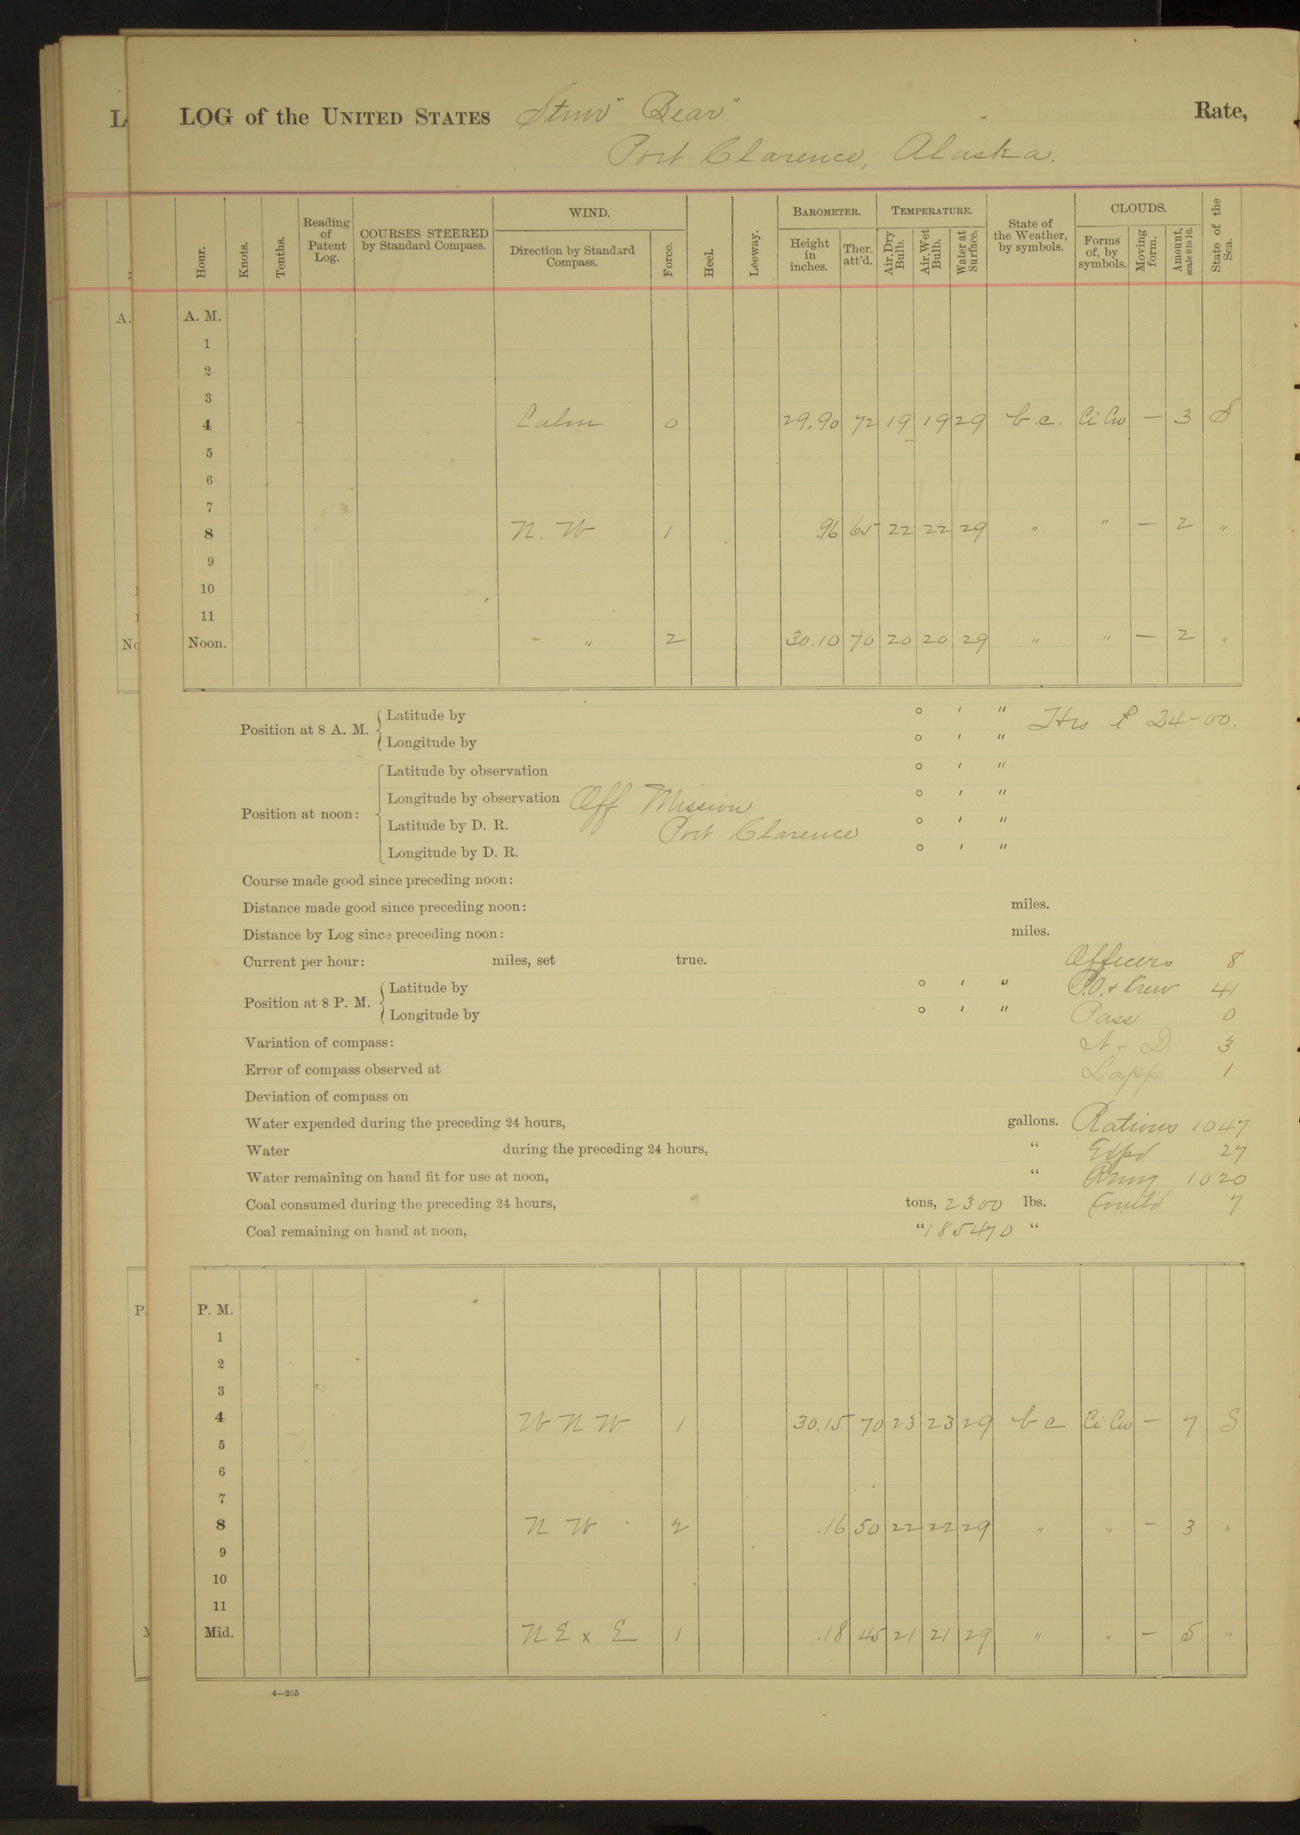 LOG of the UNITED STATES Stmr "Bear" Rate,
Port Clarence, Alaska.
Hour. Knots. Tenths. Reading of Patent Log. COURSES STEERED by Standard Compass. WIND. Direction by Standard Compass. Force. Heel. Leeway. BAROMETER. Height in inches. Ther. att'd. TEMPERATURE. Air, Dry Bulb. Air, Wet Bulb. Water at Surface. State of the Weather, by symbols. CLOUDS. Forms of, by symbols. Moving form. Amount, scale 0 to 10. State of the Sea.
A. M.
1
2
3
4 Calm 0 29.90 72 19 19 29 b.c. Ci Cu — 3 S
5
6
7
8 N. W 1 .96 65 22 22 29 " " — 2 "
9
10
11
Noon. " 2 30.10 70 20 20 29 " " — 2 "
Position at 8 A. M. Latitude by ° ′ ″ 24-00.
Longitude by ° ′ ″
Position at noon: Latitude by observation ° ′ ″
Longitude by observation Off Mission ° ′ ″
Latitude by D. R. Port Clarence ° ′ ″
Longitude by D. R. ° ′ ″
Course made good since preceding noon:
Distance made good since preceding noon: miles.
Distance by Log since preceding noon: miles.
Current per hour: miles, set true. Officers 8
Position at 8 P. M. Latitude by ° ′ ″ P.O. & Crew 41
Longitude by ° ′ ″ Pass 0
Variation of compass: N - D 3
Error of compass observed at Lapp 1
Deviation of compass on
Water expended during the preceding 24 hours, gallons. Rations 1047
Water during the preceding 24 hours, " Expd 27
Water remaining on hand fit for use at noon, " Rmng 1020
Coal consumed during the preceding 24 hours, tons, 2300 lbs. 7
Coal remaining on hand at noon, " 185470 "
P. M.
1
2
3
4 W N W 1 30.15 70 23 23 29 b c Ci Cu — 7 S
5
6
7
8 N W 2 .16 50 22 22 29 " " — 3 "
9
10
11
Mid. N E x E 1 .18 45 21 21 29 " " — 5 "
4—265